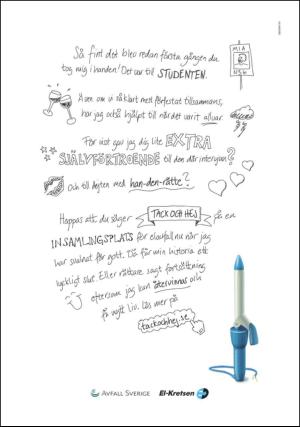 Så fint det blev redan första gången du
tog mig i handen! Det var till STUDENTEN.
MIA
NS6
Även om vi såklart mer förfestat tillsammans,
har jag också hjälpt till när det varit allvar.
För visst gav jag dig lite EXTRA
SJÄLVFÖRTROENDE till den där intervjun?
Och till dejten med han-den-rätte?
Hoppas att du säger TACK OCH HEJ på en
INSAMLINGSPLATS för elavfall nu när jag
har svalnat för gott. Då får min historia ett
lyckligt slut. Eller rättare sagt fortsättning
eftersom jag kan återvinnas och
få nytt liv. Läs mer på
tackochhej.se.
AVFALL SVERIGE
El-Kretsen